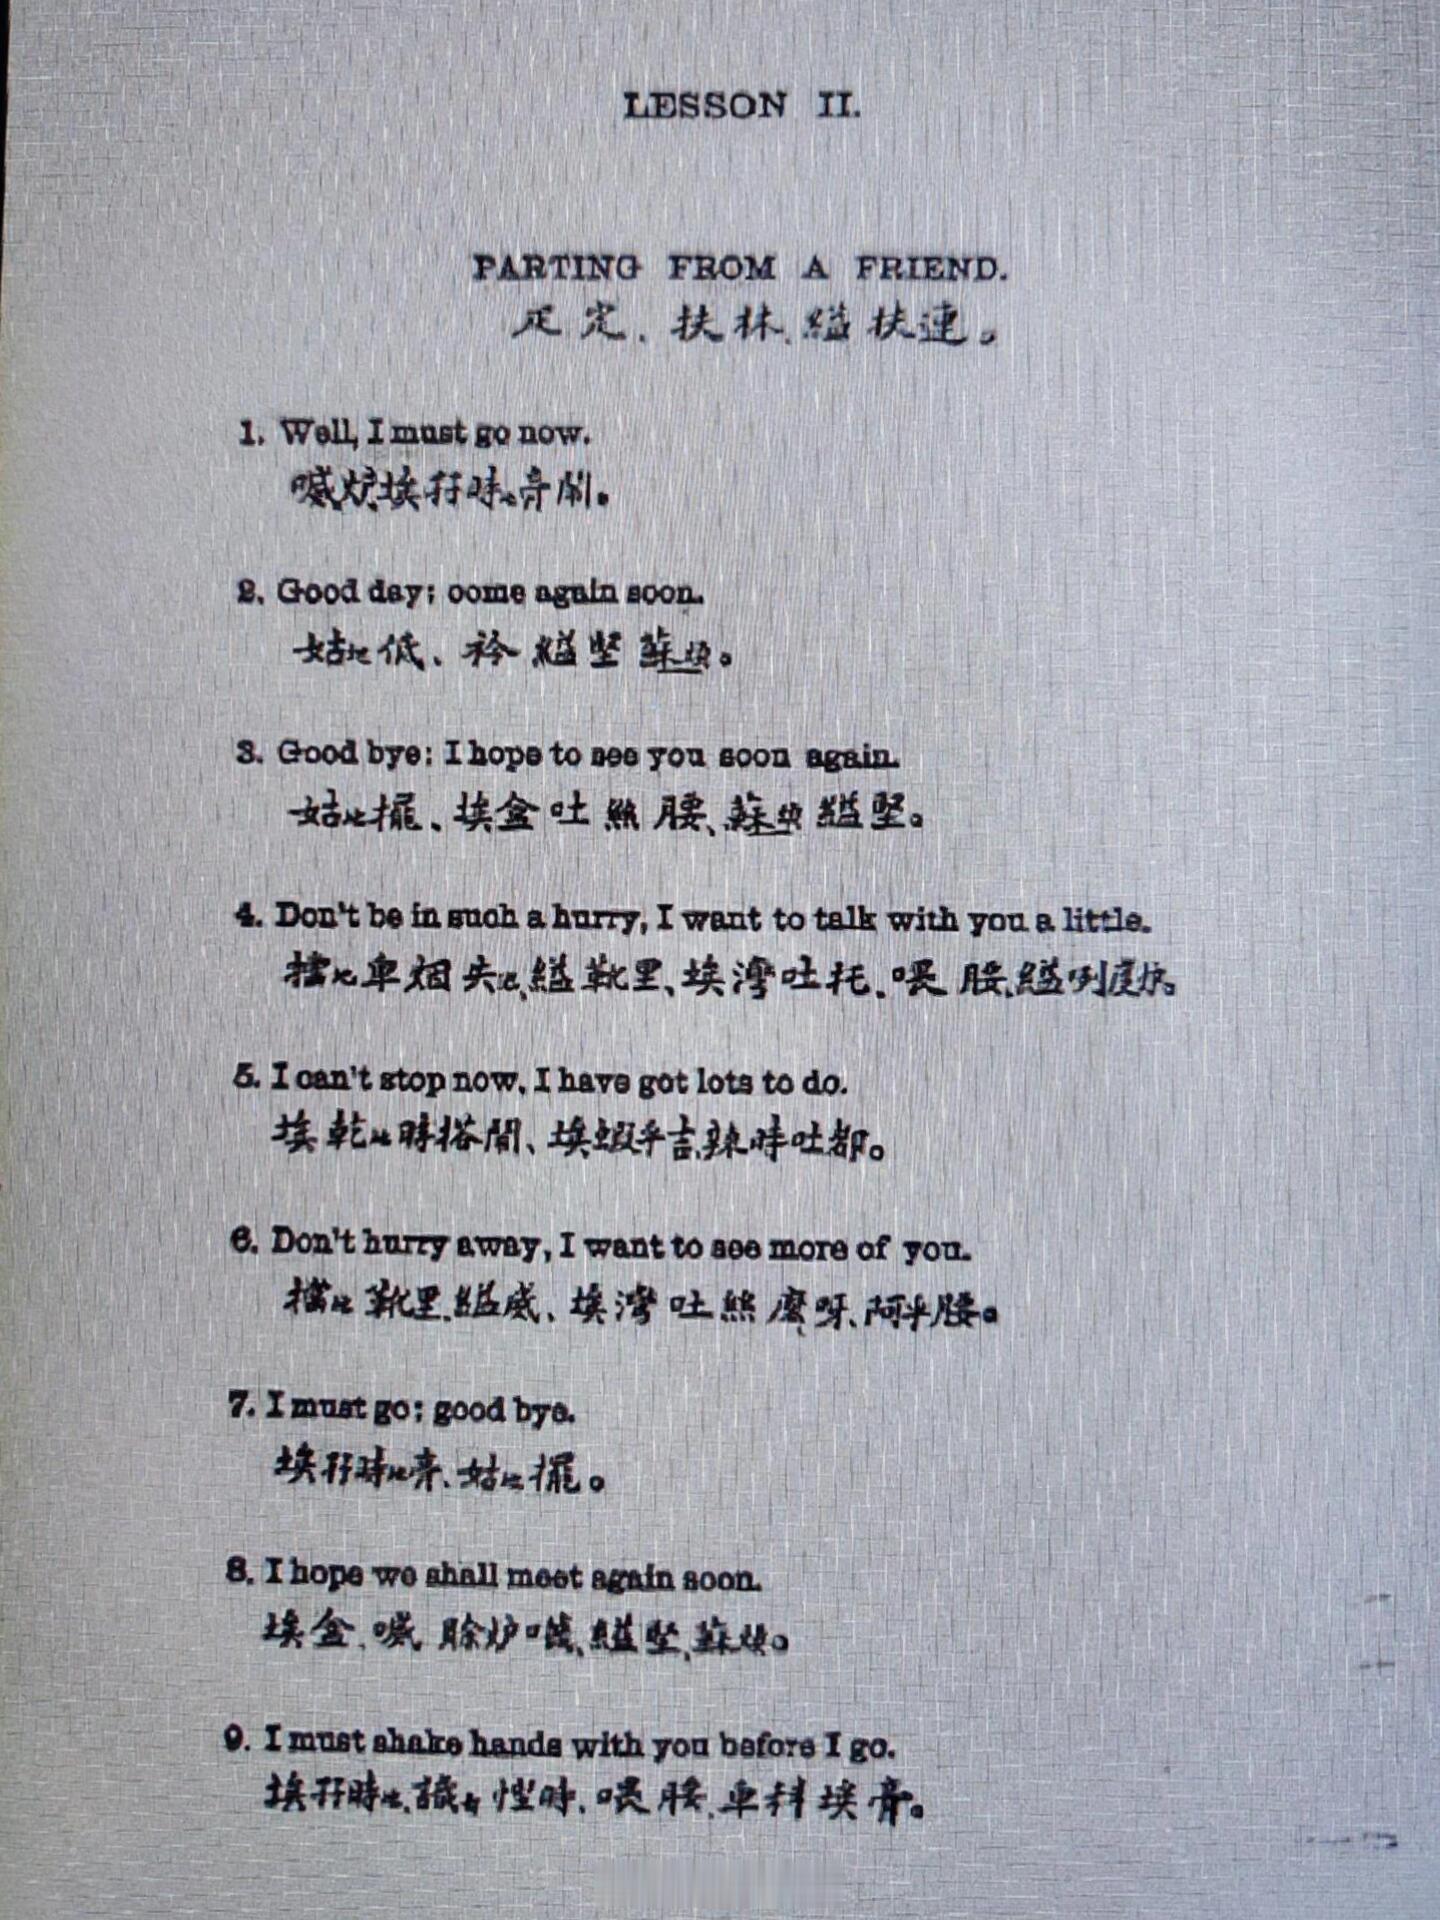 LESSON II.
PARTING FROM A FRIEND.
定、扶林、縊扶連。
1. Well, I must go now.
喊炉埃孖時 膏鬧。
2. Good day; come again soon.
姑地低、衿 縊堅蘇
3. Good bye: I hope to see you soon again.
姑 擺、埃盒吐 腰、蘇 縊堅。
4. Don't be in such a hurry, I want to talk with you a little.
擋 卑烟失 縊靴里、埃灣吐托、喂腰、縊咧度
5. I can't stop now, I have got lots to do.
埃乾 時搭鬧、埃蝦乎吉辣時吐都。
6. Don't hurry away, I want to see more of you.
擋 靴里縊威、埃灣吐 麼呀、阿乎腰。
7. I must go; good bye.
埃孖時 膏、姑 擺。
8. I hope we shall meet again soon.
埃盒、喊 賒炉 縊堅、蘇
9. I must shake hands with you before I go.
埃孖時 時、喂腰、卑科埃膏。